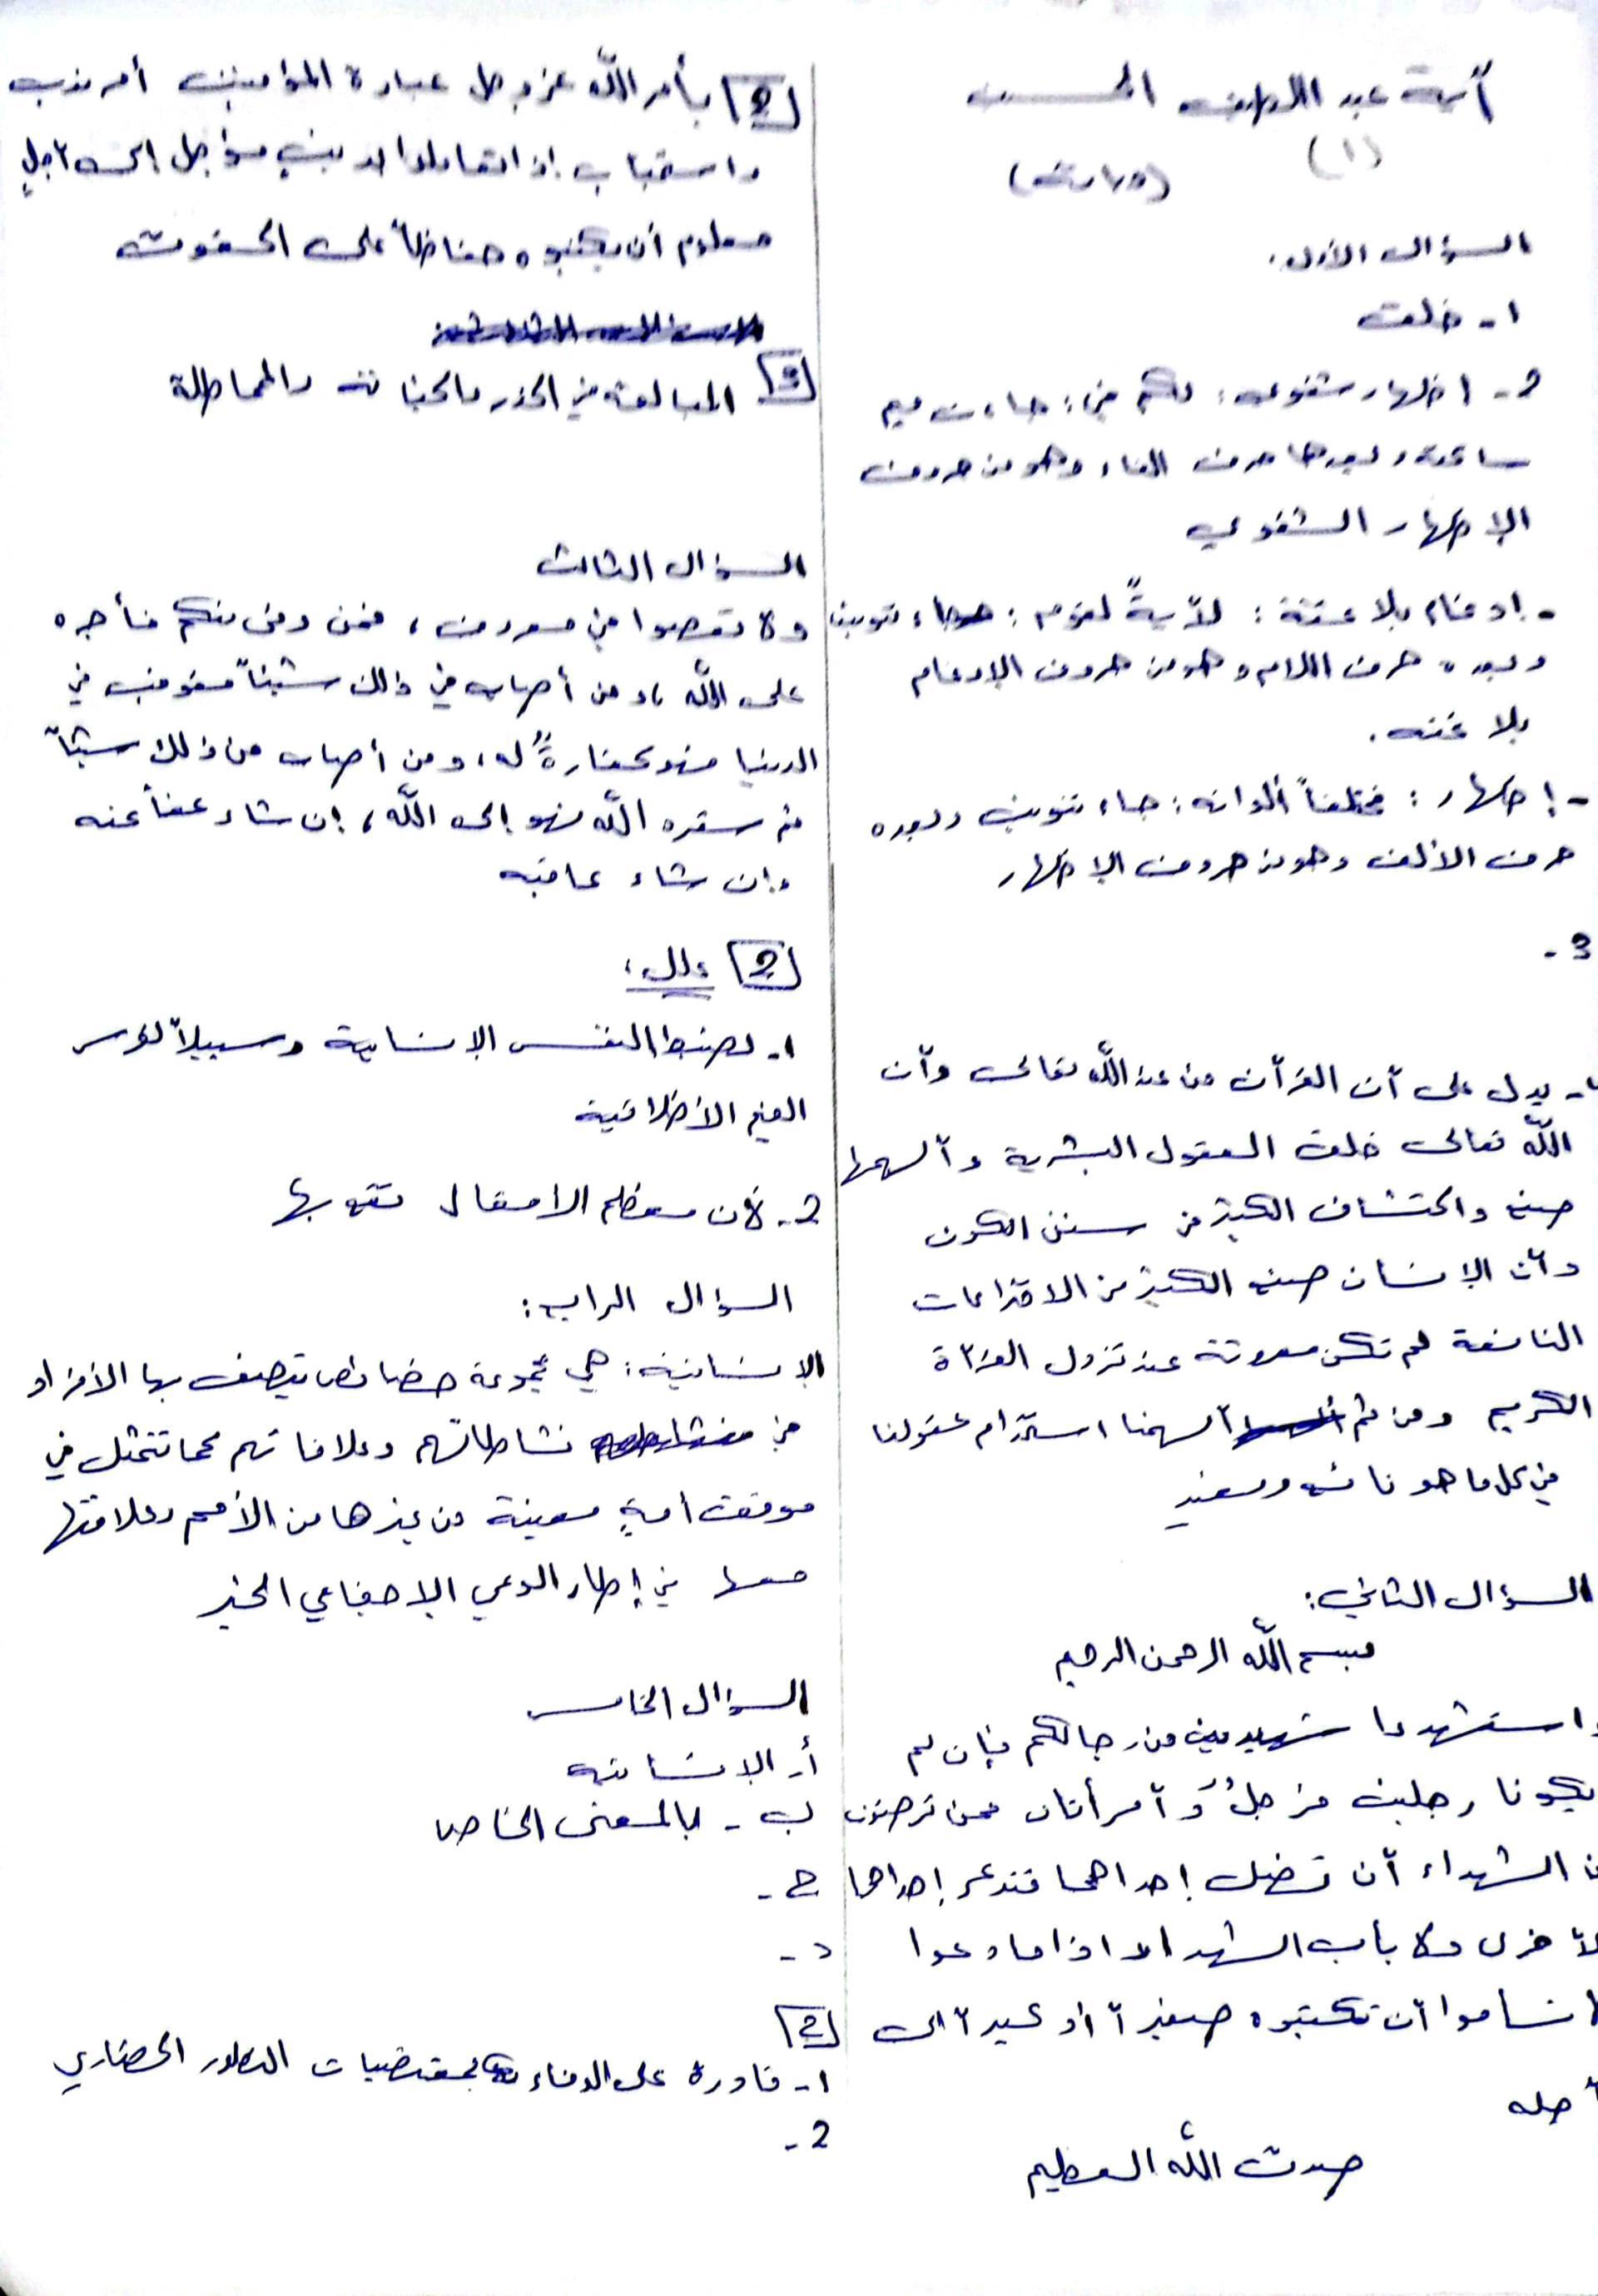 آية عبد اللطيف الحسين
(١)
السؤال الأول:
١- خلق
2- إظهار شفوي: لكم في: جاءت ميم
ساكنة وبعدها حرف الفاء وهو من حروف
الإظهار الشفوي
- إدغام بلا غنة: لآيةً لقوم: جاء تنوين
وبعده حرف اللام وهو من حروف الإدغام
بلا غنه.
- إظهار: مختلفاً ألوانه: جاء تنوين وبعده
حرف الألف وهو من حروف الإظهار
3-
٤- يدل على أن القرآن من عند الله تعالى وأن
الله تعالى خلق العقول البشرية وألهمها
صنع واكتشاف الكثير من سنن الكون
وأن الإنسان صنع الكثير من الاختراعات
النافعة لم تكن معروفة عند نزول القرآن
الكريم ومن ثم ألهمنا استخدام عقولنا
في كل ما هو نافع ومفيد
السؤال الثاني:
بسم الله الرحمن الرحيم
واستشهدوا شهيدين من رجالكم فإن لم
يكونا رجلين فرجلٌ وَ أمرأتان ممن ترضون
من الشهداء أن تضل إحداهما فتذكر إحداهما
الأخرى ولا يأب الشهداء اذا ما دعوا
تساموا أن تكتبوه صغيراً أو كبيراً الى
أجله
صدق الله العظيم
[2] يأمر الله عز وجل عباده المؤمنين أمر ندب
واستحباب إذا تعاملوا بدين مؤجل إلى أجلٍ
معلوم أن يكتبوه حفاظاً على الحقوق
[3] المبالغة في الحذر والخيانة والمماطلة
السؤال الثالث
ولا تعصوا في معروف، فمن وفى منكم فأجره
على الله، ومن أصاب في ذالك شيئاً فعوقب في
الدنيا فهو كفارةٌ له، ومن أصاب من ذلك شيئاً
ثم ستره الله فهو إلى الله، إن شاء عفا عنه
وإن شاء عاقبه
[2] علل:
١- لضبط النفس الإنسانية وسبيلاً لغرس
القيم الأخلاقية
2- لأن معظم الافعال تتم بها
السؤال الرابع:
الإنسانية: هي مجموعة خصائص يتصف بها الأفراد
في نشاطاتهم وعلاقاتهم كما تتمثل في
موقف أمةٍ معينة من غيرها من الأمم وعلاقتها
معها في إطار الوعي الاجتماعي الخير
السؤال الخامس
أ- الانسانيه
ب - بالمعنى الخاص
ج -
د -
[2]
١- قادرة على الوفاء بمقتضيات التطور الحضاري
2-